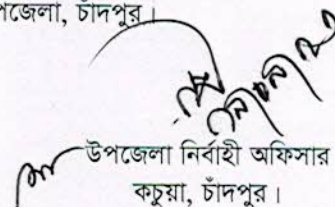 পজেলা, চাঁদপুর।
উপজেলা নির্বাহী অফিসার
কচুয়া, চাঁদপুর।